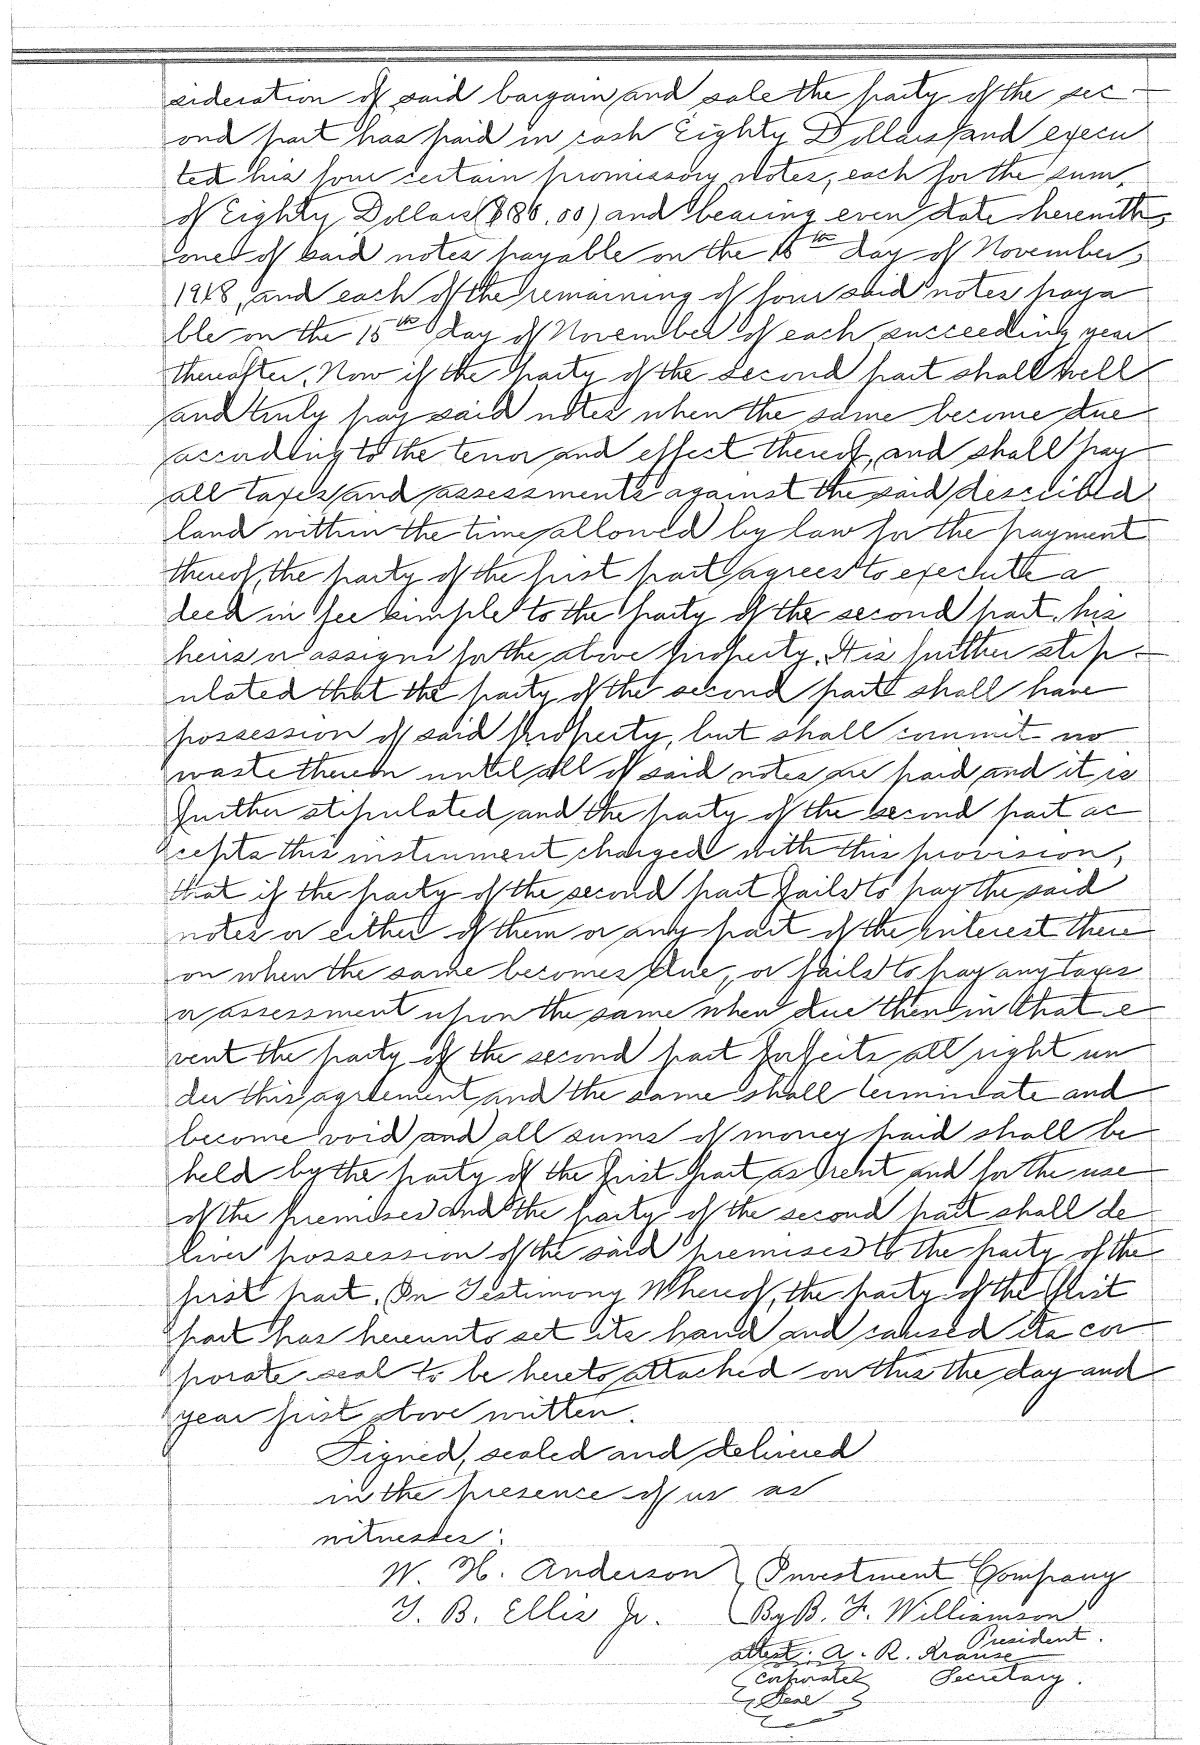 sideration of said bargain and sale the party of the sec-
ond part has paid in cash Eighty Dollars and execu
ted his four certain promissory notes, each for the sum,
of Eighty Dollars ($80.00) and bearing even date herewith,
one of said notes payable on the 15th day of November,
1918, and each of the remaining of four said notes paya
ble on the 15th day of November of each succeeding year
thereafter. Now if the party of the second part shall well
and truly pay said notes when the same become due
according to the tenor and effect thereof, and shall pay
all taxes and assessments against the said described
land within the time allowed by law for the payment
thereof, the party of the first part agrees to execute a
deed in fee simple to the party of the second part, his
heirs or assigns for the above property. It is further stip-
ulated that the party of the second part shall have
possession of said property, but shall commit no
waste thereon until all of said notes are paid and it is
further stipulated and the party of the second part ac
cepts this instrument charged with this provision,
that if the party of the second part fails to pay the said
notes or either of them or any part of the interest there
on when the same becomes due, or fails to pay any taxes
or assessment upon the same when due then in that e
vent the party of the second part forfeits all right un
der this agreement and the same shall terminate and
become void and all sums of money paid shall be
held by the party of the first part as rent and for the use
of the premises and the party of the second part shall de
liver possession of the said premises to the party of the
first part. In Testimony Whereof, the party of the first
part has hereunto set its hand and caused its cor
porate seal to be hereto attached on this the day and
year first above written.
Signed, sealed and delivered
in the presence of us as
witnesses:
W. H. Anderson } Investment Company
T. B. Ellis Jr. By B. F. Williamson
President.
attest: A. R. Krause
Corporate Secretary.
Seal